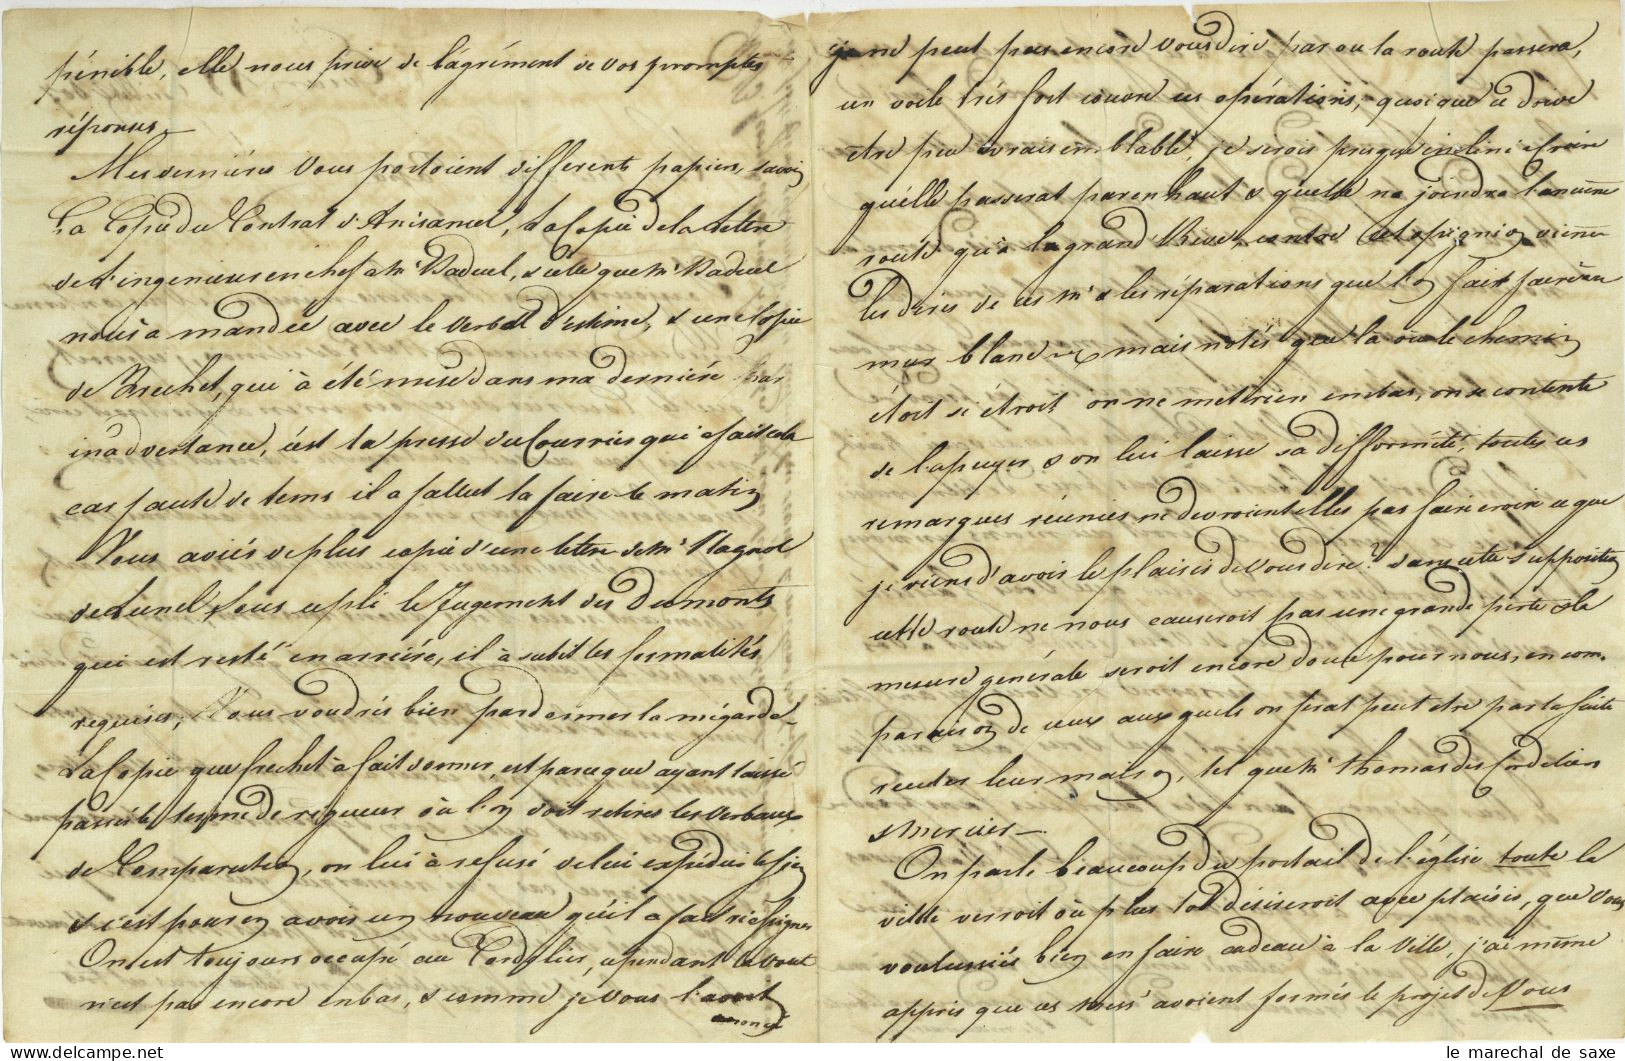 pénible, elle nous prive de l'agrément de vos promptes
réponses.
Mes dernières vous portoient differents papiers, savoir
La Copie du Contrat d' la Copie de la Lettre
de L'ingenieur en chef a Mr Baduel, & celle que Mr Baduel
nous a mandée avec le verbal d'estime, & une Copie
de Brechet, qui à été mise dans ma dernière par
inadvertance, c'est la presse du Courrier qui a fait cela
car faute de tems il a fallut la faire le matin
Vous aviés de plus copie d'une lettre de Mr Plagnol
de Lunel sous ce pli le Jugement des Dumonts
qui est resté en arrière, il à subit les formalités
requises, Vous voudrés bien pardonner la mégarde
La Copie que frechet à fait donner, est parce que ayant laissé
passer le terme de rigueur où l'on doit retirer les verbaux
de Comparution, on lui à refusé de lui expédier le sien
& c'est pour en avoir un nouveau qu'il a fait
On est toujours occupé au Cordelier, cependant le tout
n'est pas encore en bas, & comme je vous l'avois
annoncé
je ne peut pas encore vous dire par ou la route passera,
un voile très fort couvre ces opérations, quoique ce doive
être peu vraisemblable, je serois presque incliné a croire
qu'elle passerat par en haut & quelle ne joindra l'ancienne
route qu'à la grand' contre cet opignion vienn
les dires de ces Mr & les réparations que l'on fait faire au
mur blanc mais notés que là où le chemin
étoit si étroit on ne met rien en bas, on se contente
de l'apuyer & on lui laisse sa difformité, toutes ces
remarques réunies ne devroient elles pas faire croire ce que
je viens d'avoir le plaisir de vous dire? dans cette supposition
cette route ne nous causeroit pas une grande perte & la
mesure générale seroit encore douce pour nous, en com-
paraison de ceux auxquels on ferat peut etre par la suite
reculer leur maison, tel que Mr Thomas des Cordeliers
& Mercier —
On parle beaucoup du portail de l'église toute la
ville verroit où plus tot désireroit avec plaisir, que vous
voulussiés bien en faire cadeau à la Ville, j'ai même
appris que ces Mess' avoient formés le projet de Vous
le marechal de saxe